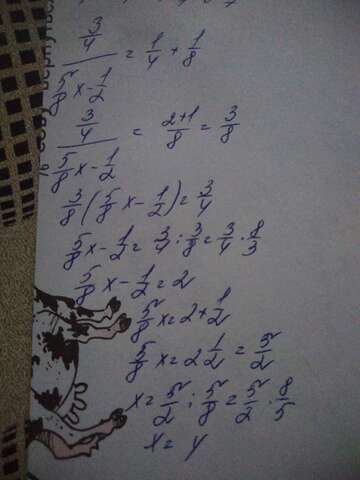 (3/4)/(5/8 x - 1/2) = 1/4 + 1/8
(3/4)/(5/8 x - 1/2) = (2+1)/8 = 3/8
3/8 (5/8 x - 1/2) = 3/4
5/8 x - 1/2 = 3/4 : 3/8 = 3/4 · 8/3
5/8 x - 1/2 = 2
5/8 x = 2 + 1/2
5/8 x = 2 1/2 = 5/2
x = 5/2 : 5/8 = 5/2 · 8/5
x = 4